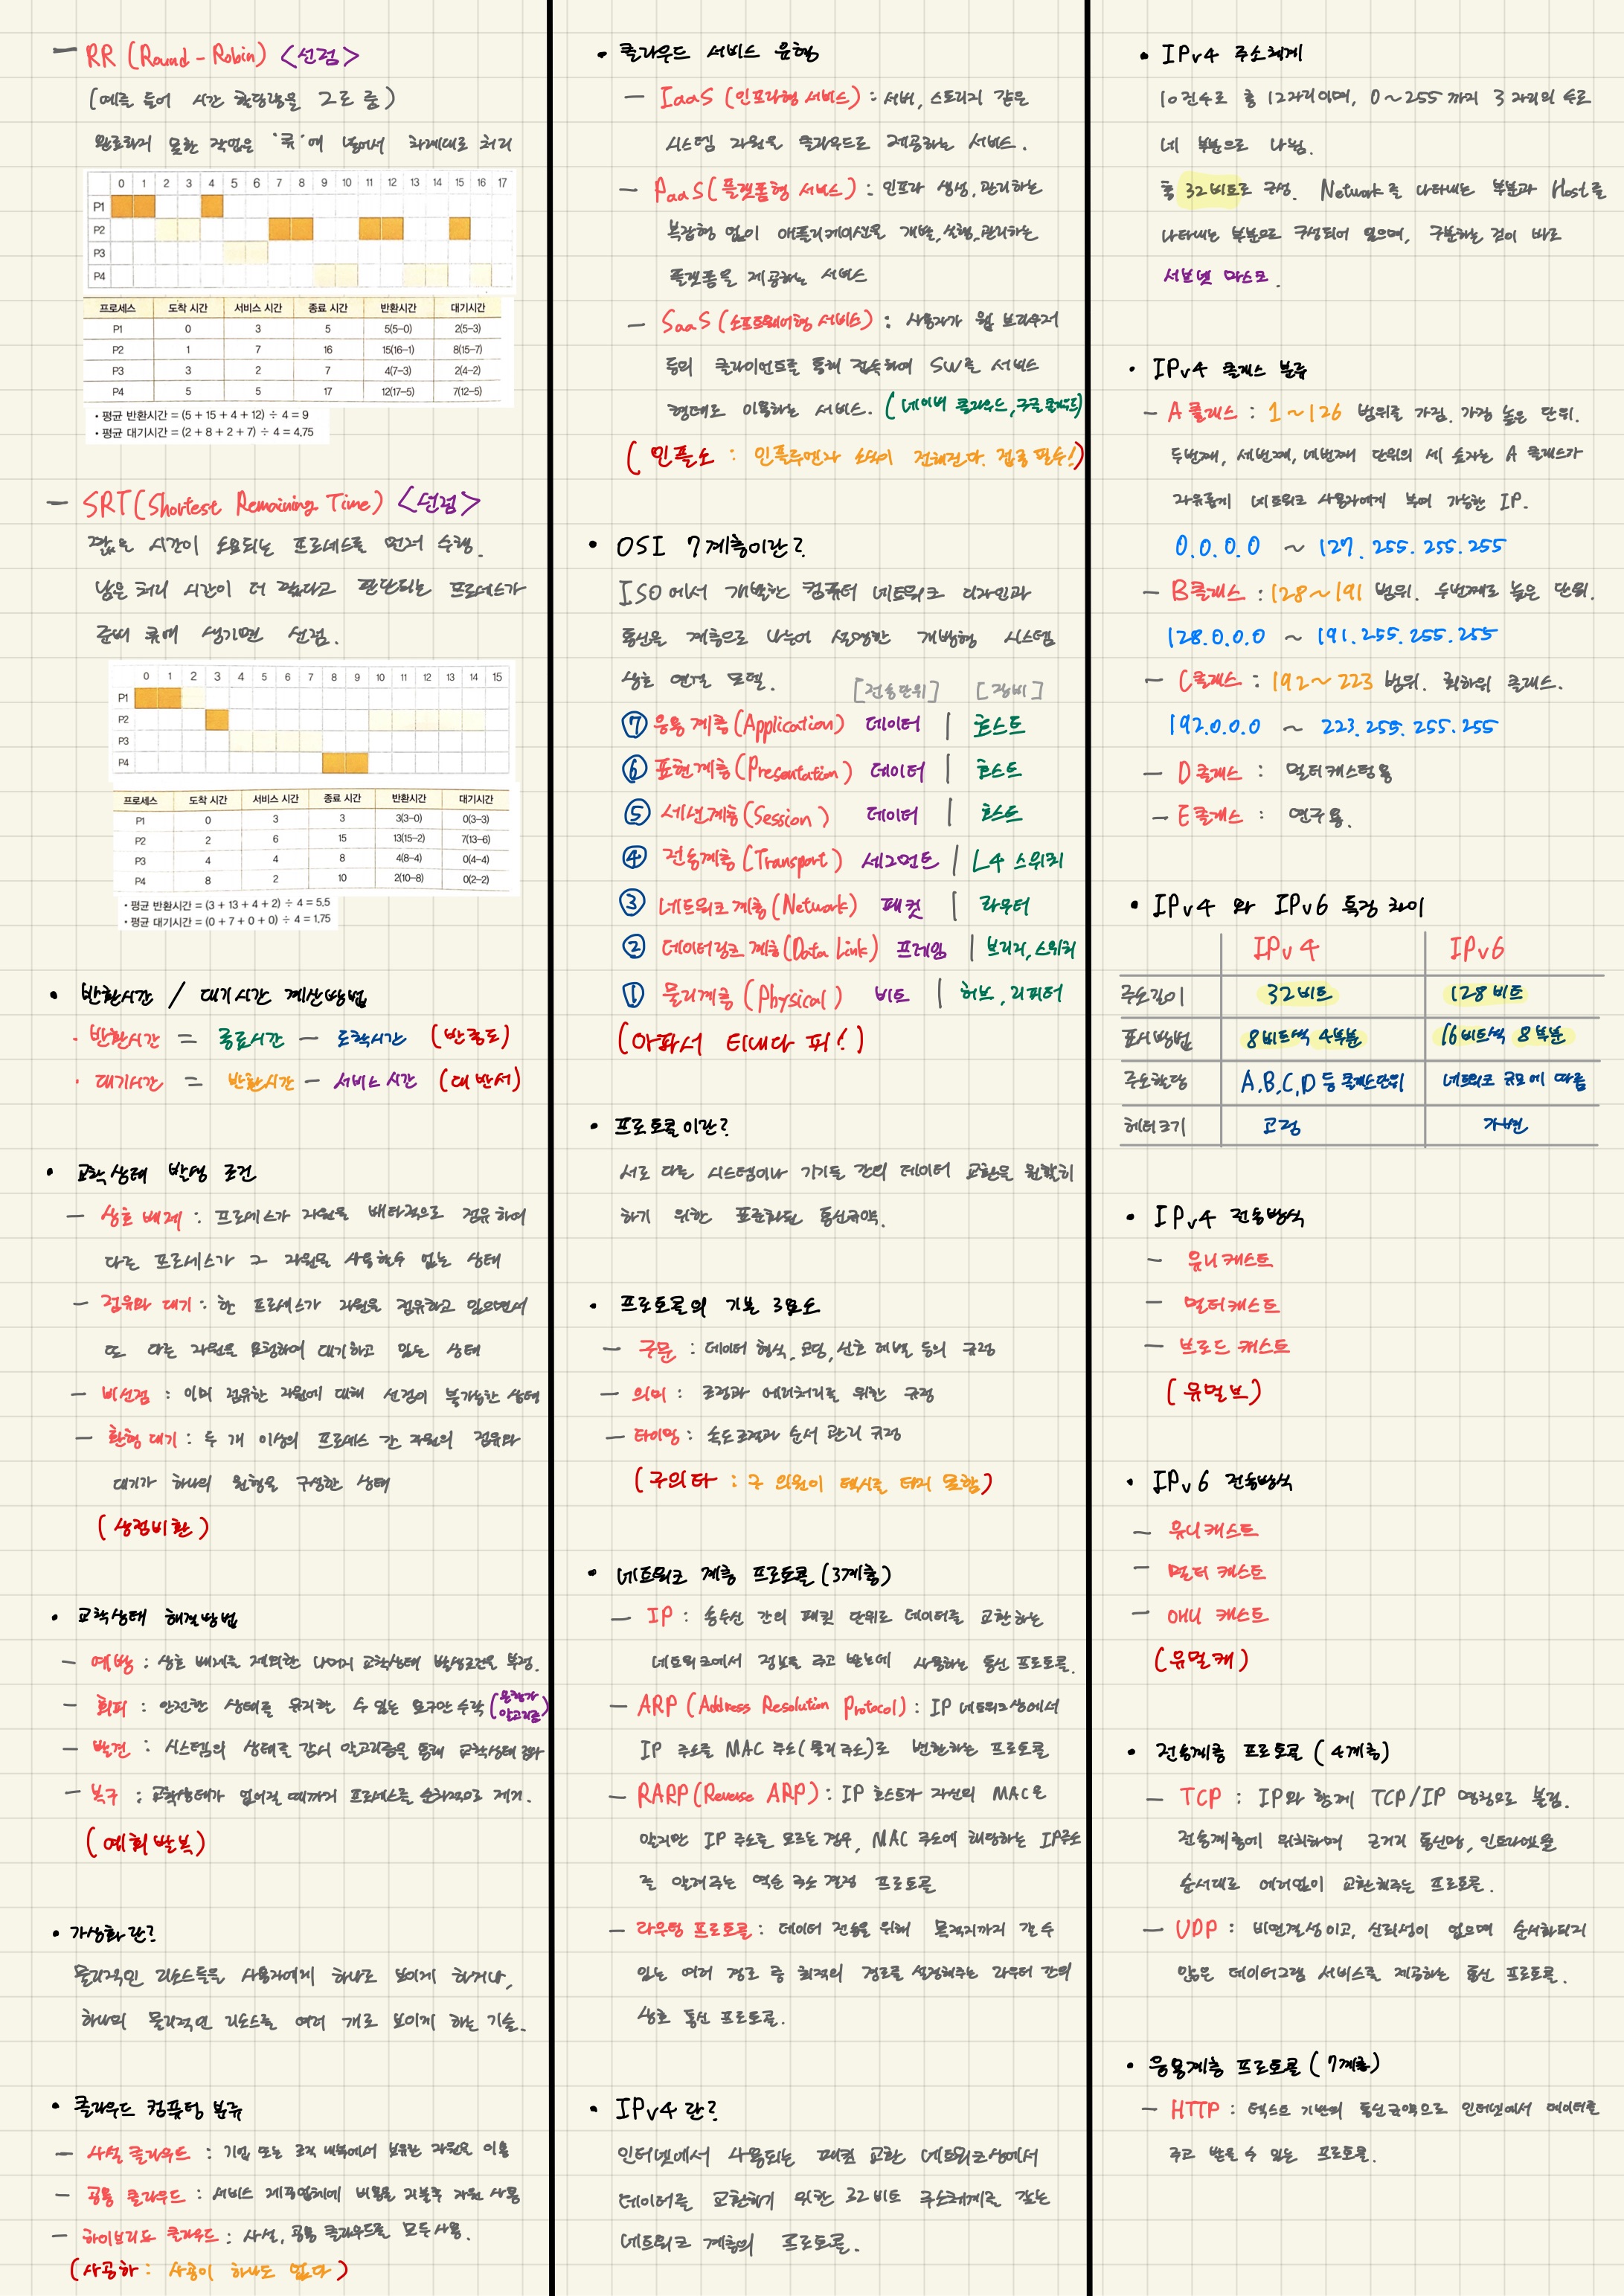 — RR (Round - Robin) <선점>
(예를 들어 시간 할당량을 2로 둠)
완료하지 못한 작업은 '큐'에 넣어서 차례대로 처리
0 1 2 3 4 5 6 7 8 9 10 11 12 13 14 15 16 17
P1
P2
P3
P4
프로세스 도착 시간 서비스 시간 종료 시간 반환시간 대기시간
P1 0 3 5 5(5–0) 2(5–3)
P2 1 7 16 15(16–1) 8(15–7)
P3 3 2 7 4(7–3) 2(4–2)
P4 5 5 17 12(17–5) 7(12–5)
• 평균 반환시간 = (5 + 15 + 4 + 12) ÷ 4 = 9
• 평균 대기시간 = (2 + 8 + 2 + 7) ÷ 4 = 4.75
— SRT (Shortest Remaining Time) <선점>
짧은 시간이 소요되는 프로세스를 먼저 수행.
남은 처리 시간이 더 짧다고 판단되는 프로세스가
준비 큐에 생기면 선점.
0 1 2 3 4 5 6 7 8 9 10 11 12 13 14 15
P1
P2
P3
P4
프로세스 도착 시간 서비스 시간 종료 시간 반환시간 대기시간
P1 0 3 3 3(3–0) 0(3–3)
P2 2 6 15 13(15–2) 7(13–6)
P3 4 4 8 4(8–4) 0(4–4)
P4 8 2 10 2(10–8) 0(2–2)
• 평균 반환시간 = (3 + 13 + 4 + 2) ÷ 4 = 5.5
• 평균 대기시간 = (0 + 7 + 0 + 0) ÷ 4 = 1.75
• 반환시간 / 대기시간 계산방법
· 반환시간 = 종료시간 — 도착시간 (반종도)
· 대기시간 = 반환시간 — 서비스 시간 (대반서)
• 교착상태 발생 조건
— 상호 배제 : 프로세스가 자원을 배타적으로 점유하여
다른 프로세스가 그 자원을 사용할수 없는 상태
— 점유와 대기 : 한 프로세스가 자원을 점유하고 있으면서
또 다른 자원을 요청하여 대기하고 있는 상태
— 비선점 : 이미 점유한 자원에 대해 선점이 불가능한 상태
— 환형 대기 : 두 개 이상의 프로세스 간 자원의 점유와
대기가 하나의 원형을 구성한 상태
(상점비환)
• 교착상태 해결방법
— 예방 : 상호 배제를 제외한 나머지 교착상태 발생조건을 부정.
— 회피 : 안전한 상태를 유지할 수 있는 요구만 수락 (은행가 알고리즘)
— 발견 : 시스템의 상태를 감시 알고리즘을 통해 교착상태 검사
— 복구 : 교착상태가 없어질 때까지 프로세스를 순차적으로 제거.
(예회발복)
• 가상화란?
물리적인 리소스들을 사용자에게 하나로 보이게 하거나,
하나의 물리적인 리소스를 여러 개로 보이게 하는 기술.
• 클라우드 컴퓨팅 분류
— 사설 클라우드 : 기업 또는 조직 내부에서 보유한 자원을 이용
— 공용 클라우드 : 서비스 제공업체에 비용을 지불후 자원 사용
— 하이브리드 클라우드 : 사설, 공용 클라우드를 모두사용.
(사공하 : 사공이 하나도 없다)
• 클라우드 서비스 유형
— IaaS (인프라형 서비스) : 서버, 스토리지 같은
시스템 자원을 클라우드로 제공하는 서비스.
— PaaS (플랫폼형 서비스) : 인프라 생성, 관리하는
복잡함 없이 애플리케이션을 개발, 실행, 관리하는
플랫폼을 제공하는 서비스
— SaaS (소프트웨어형 서비스) : 사용자가 웹 브라우저
등의 클라이언트를 통해 접속하여 SW를 서비스
형태로 이용하는 서비스. (네이버 클라우드, 구글 클라우드)
(인플소 : 인플루엔자 소식이 전해진다. 접종 필수!)
• OSI 7계층이란?
ISO에서 개발한 컴퓨터 네트워크 디자인과
통신을 계층으로 나누어 설명한 개방형 시스템
상호 연결 모델. [전송단위] [장비]
⑦ 응용 계층 (Application) 데이터 | 호스트
⑥ 표현계층 (Presentation) 데이터 | 호스트
⑤ 세션계층 (Session) 데이터 | 호스트
④ 전송계층 (Transport) 세그먼트 | L4 스위치
③ 네트워크 계층 (Network) 패킷 | 라우터
② 데이터링크 계층 (Data Link) 프레임 | 브리지, 스위치
① 물리계층 (Physical) 비트 | 허브, 리피터
(아파서 티내다 피!)
• 프로토콜이란?
서로 다른 시스템이나 기기들 간의 데이터 교환을 원활히
하기 위한 표준화된 통신규약.
• 프로토콜의 기본 3요소
— 구문 : 데이터 형식, 코딩, 신호 레벨 등의 규정
— 의미 : 조정과 에러처리를 위한 규정
— 타이밍 : 속도조절과 순서 관리 규정
(구의타 : 구 의원이 택시를 타지 못함)
• 네트워크 계층 프로토콜 (3계층)
— IP : 송수신 간의 패킷 단위로 데이터를 교환하는
네트워크에서 정보를 주고 받는데 사용하는 통신 프로토콜.
— ARP (Address Resolution Protocol) : IP 네트워크상에서
IP 주소를 MAC 주소(물리주소)로 변환하는 프로토콜
— RARP (Reverse ARP) : IP 호스트가 자신의 MAC은
알지만 IP 주소를 모르는 경우, MAC 주소에 해당하는 IP주소
를 알려주는 역순 주소 결정 프로토콜
— 라우팅 프로토콜 : 데이터 전송을 위해 목적지까지 갈 수
있는 여러 경로 중 최적의 경로를 설정해주는 라우터 간의
상호 통신 프로토콜.
• IPv4 란?
인터넷에서 사용되는 패킷 교환 네트워크상에서
데이터를 교환하기 위한 32비트 주소체계를 갖는
네트워크 계층의 프로토콜.
• IPv4 주소체계
10진수로 총 12자리이며, 0~255까지 3자리의 수로
네 부분으로 나뉨.
총 32비트로 구성. Network를 나타내는 부분과 Host를
나타내는 부분으로 구성되어 있으며, 구분하는 것이 바로
서브넷 마스크.
• IPv4 클래스 분류
— A클래스 : 1~126 범위를 가짐. 가장 높은 단위.
두번째, 세번째, 네번째 단위의 세 숫자는 A 클래스가
자유롭게 네트워크 사용자에게 부여 가능한 IP.
0.0.0.0 ~ 127.255.255.255
— B클래스 : 128~191 범위. 두번째로 높은 단위.
128.0.0.0 ~ 191.255.255.255
— C클래스 : 192~223 범위. 최하위 클래스.
192.0.0.0 ~ 223.255.255.255
— D클래스 : 멀티캐스팅용
— E클래스 : 연구용.
• IPv4 와 IPv6 특징 차이
IPv4 IPv6
주소길이 32비트 128비트
표시방법 8비트씩 4부분 16비트씩 8부분
주소할당 A,B,C,D 등 클래스단위 네트워크 규모에 따름
헤더크기 고정 가변
• IPv4 전송방식
— 유니캐스트
— 멀티캐스트
— 브로드 캐스트
(유멀브)
• IPv6 전송방식
— 유니캐스트
— 멀티 캐스트
— 애니 캐스트
(유멀애)
• 전송계층 프로토콜 (4계층)
— TCP : IP와 함께 TCP/IP 명칭으로 불림.
전송계층에 위치하며 근거리 통신망, 인트라넷을
순서대로 에러없이 교환해주는 프로토콜.
— UDP : 비연결성이고, 신뢰성이 없으며 순서화되지
않은 데이터그램 서비스를 제공하는 통신 프로토콜.
• 응용계층 프로토콜 (7계층)
— HTTP : 텍스트 기반의 통신규약으로 인터넷에서 데이터를
주고 받을 수 있는 프로토콜.